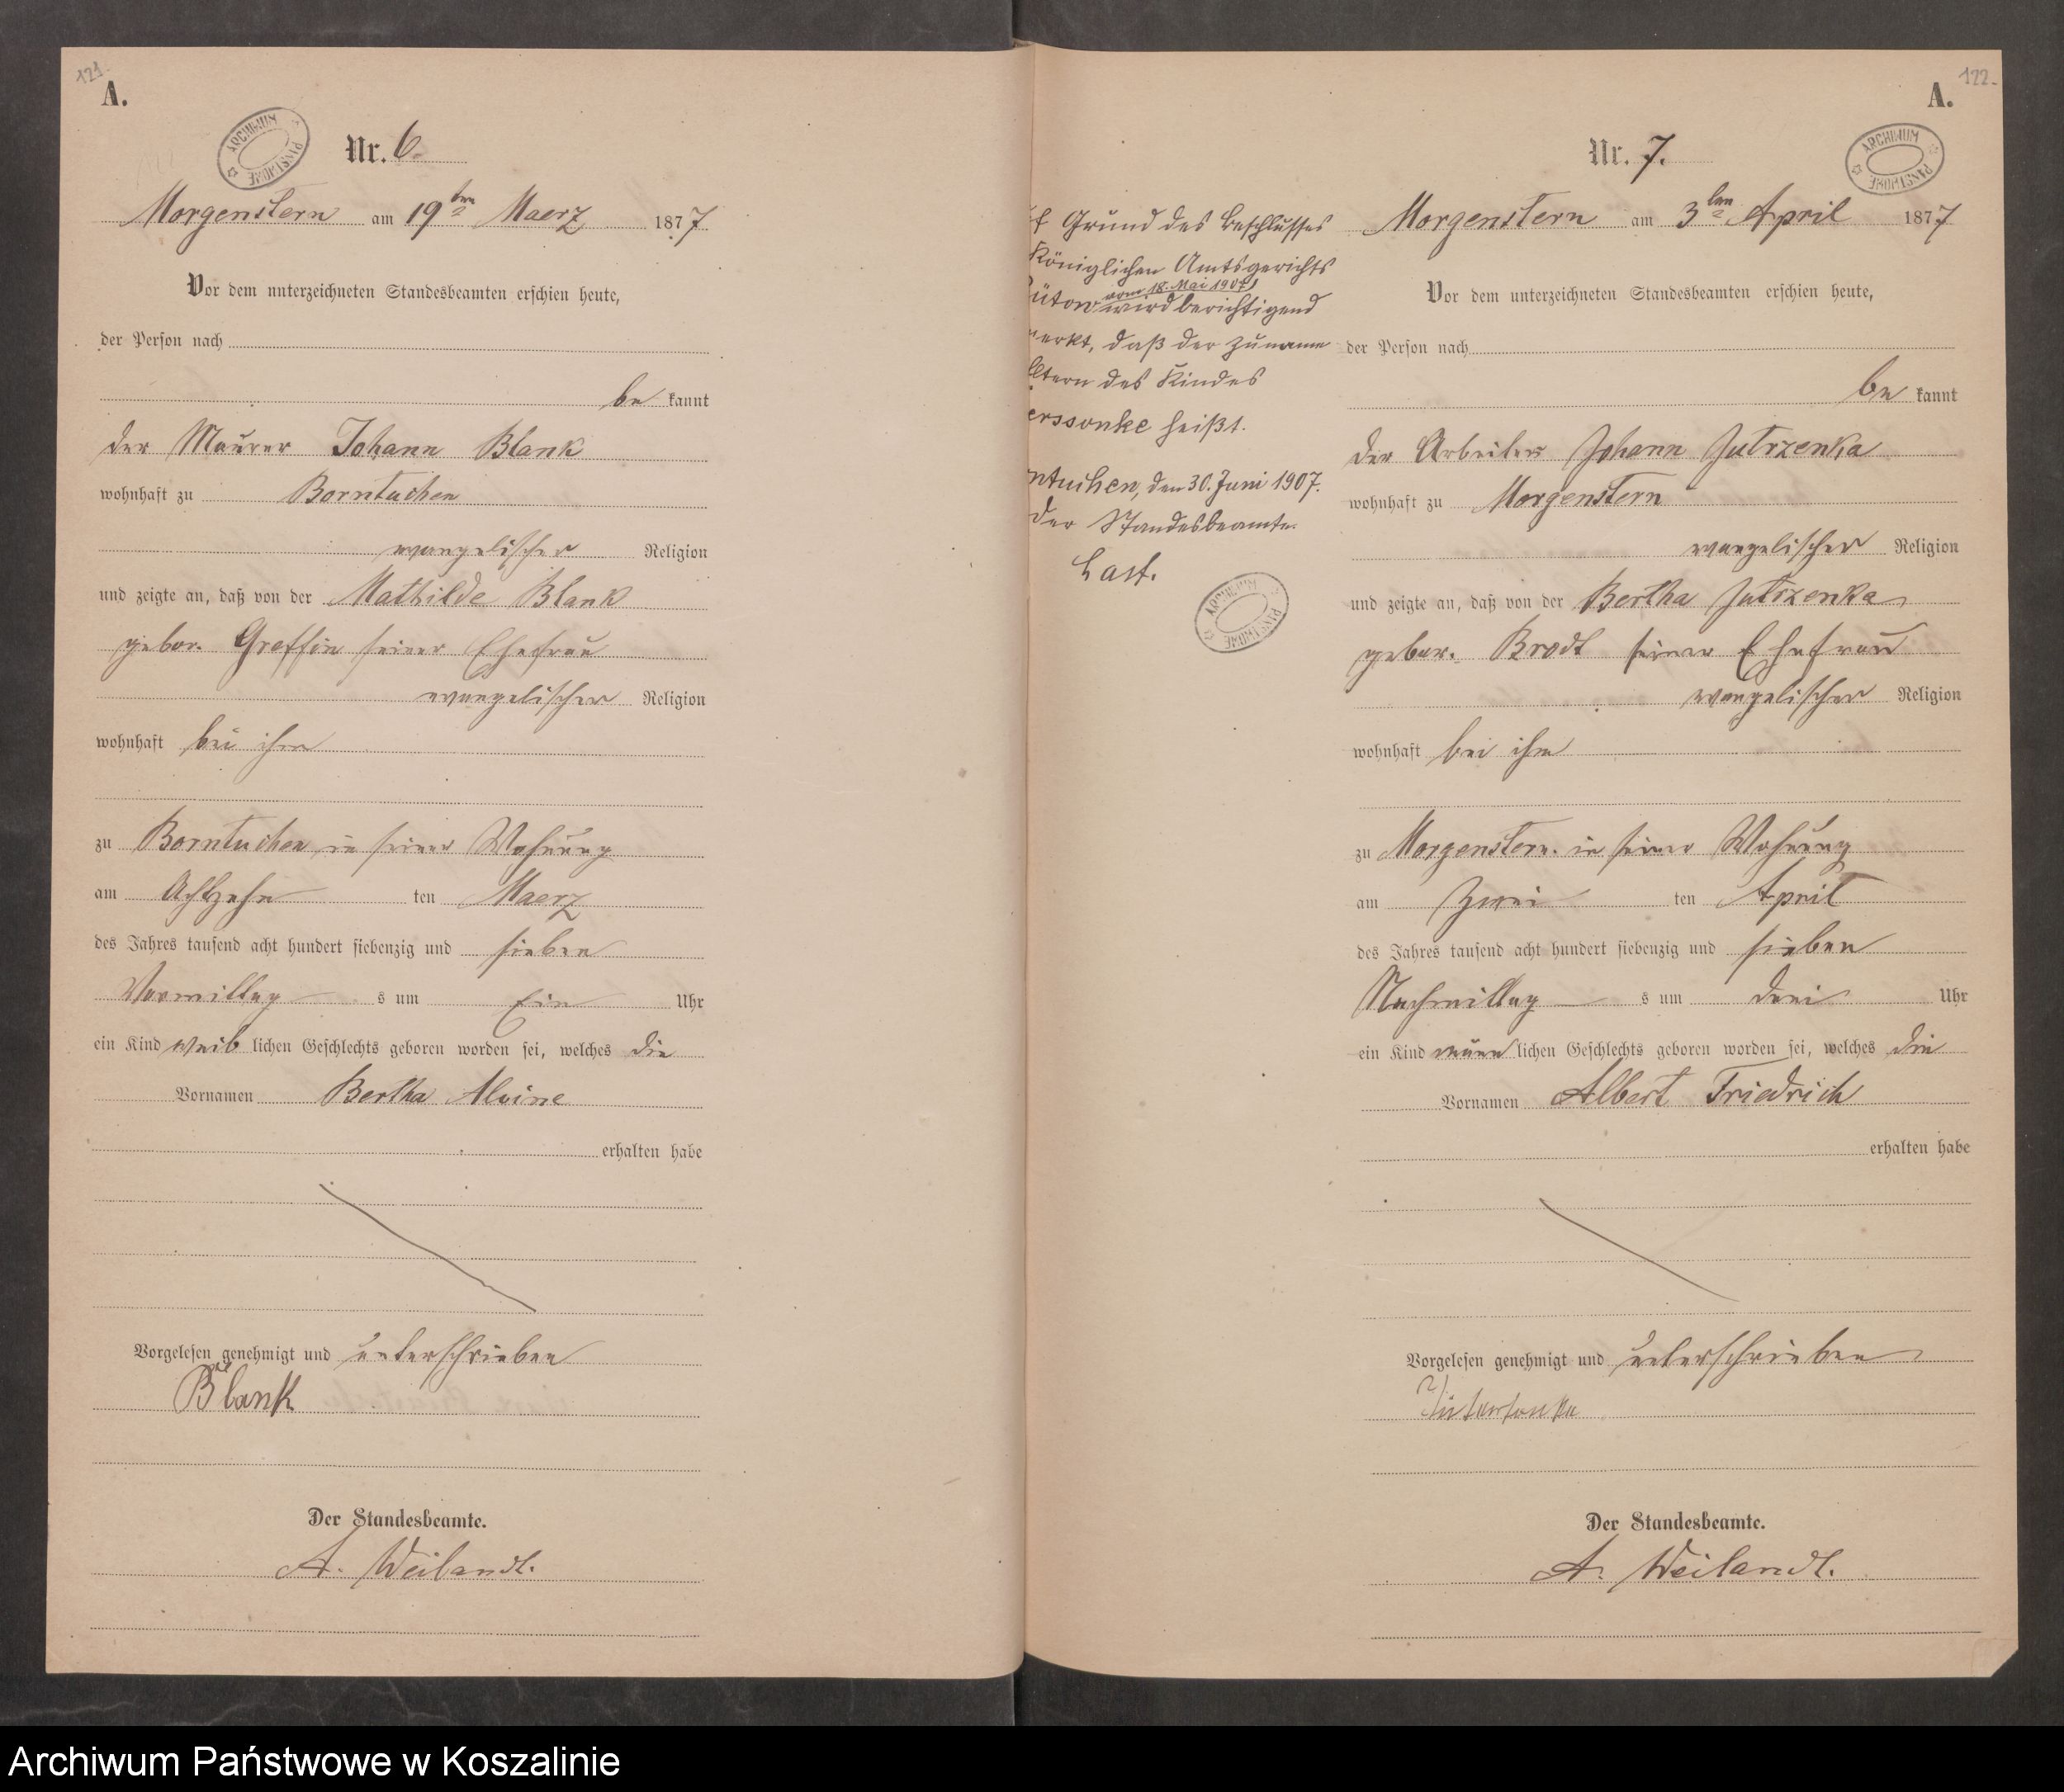 121.
A.
ARCHIWUM PAŃSTWOWE
Nr. 6.
Morgenstern am 19ten Maerz 1877
Vor dem unterzeichneten Standesbeamten erschien heute,
der Person nach
be kannt
der Maurer Johann Blank
wohnhaft zu Borntuchen
evangelischer Religion
und zeigte an, daß von der Mathilde Blank
gebor. Greffin seiner Ehefrau
evangelischer Religion
wohnhaft bei ihm
zu Borntuchen in seiner Wohnung
am Achtzehn ten Maerz
des Jahres tausend acht hundert siebenzig und sieben
Vormittag s um Ein Uhr
ein Kind weib lichen Geschlechts geboren worden sei, welches die
Vornamen Bertha Alvine
erhalten habe
Vorgelesen genehmigt und unterschrieben
Blank
Der Standesbeamte.
A. Weilandt.
122.
A.
ARCHIWUM PAŃSTWOWE
Nr. 7.
f Grund des Beschlusses
Königlichen Amtsgerichts
ütow vom 18. Mai 1907 wird berichtigend
merkt, daß der Zuname
Eltern des Kindes
erssonke heißt.
ntuchen, den 30. Juni 1907.
Der Standesbeamte.
Last.
ARCHIWUM PAŃSTWOWE
Morgenstern am 3ten April 1877
Vor dem unterzeichneten Standesbeamten erschien heute,
der Person nach
be kannt
der Arbeiter Johann Jutrzenka
wohnhaft zu Morgenstern
evangelischer Religion
und zeigte an, daß von der Bertha Jutrzenka
gebor. Brodt seiner Ehefrau
evangelischer Religion
wohnhaft bei ihm
zu Morgenstern in seiner Wohnung
am Zwei ten April
des Jahres tausend acht hundert siebenzig und sieben
Nachmittag s um drei Uhr
ein Kind männ lichen Geschlechts geboren worden sei, welches die
Vornamen Albert Friedrich
erhalten habe
Vorgelesen genehmigt und unterschrieben
Der Standesbeamte.
A. Weilandt.
Archiwum Państwowe w Koszalinie